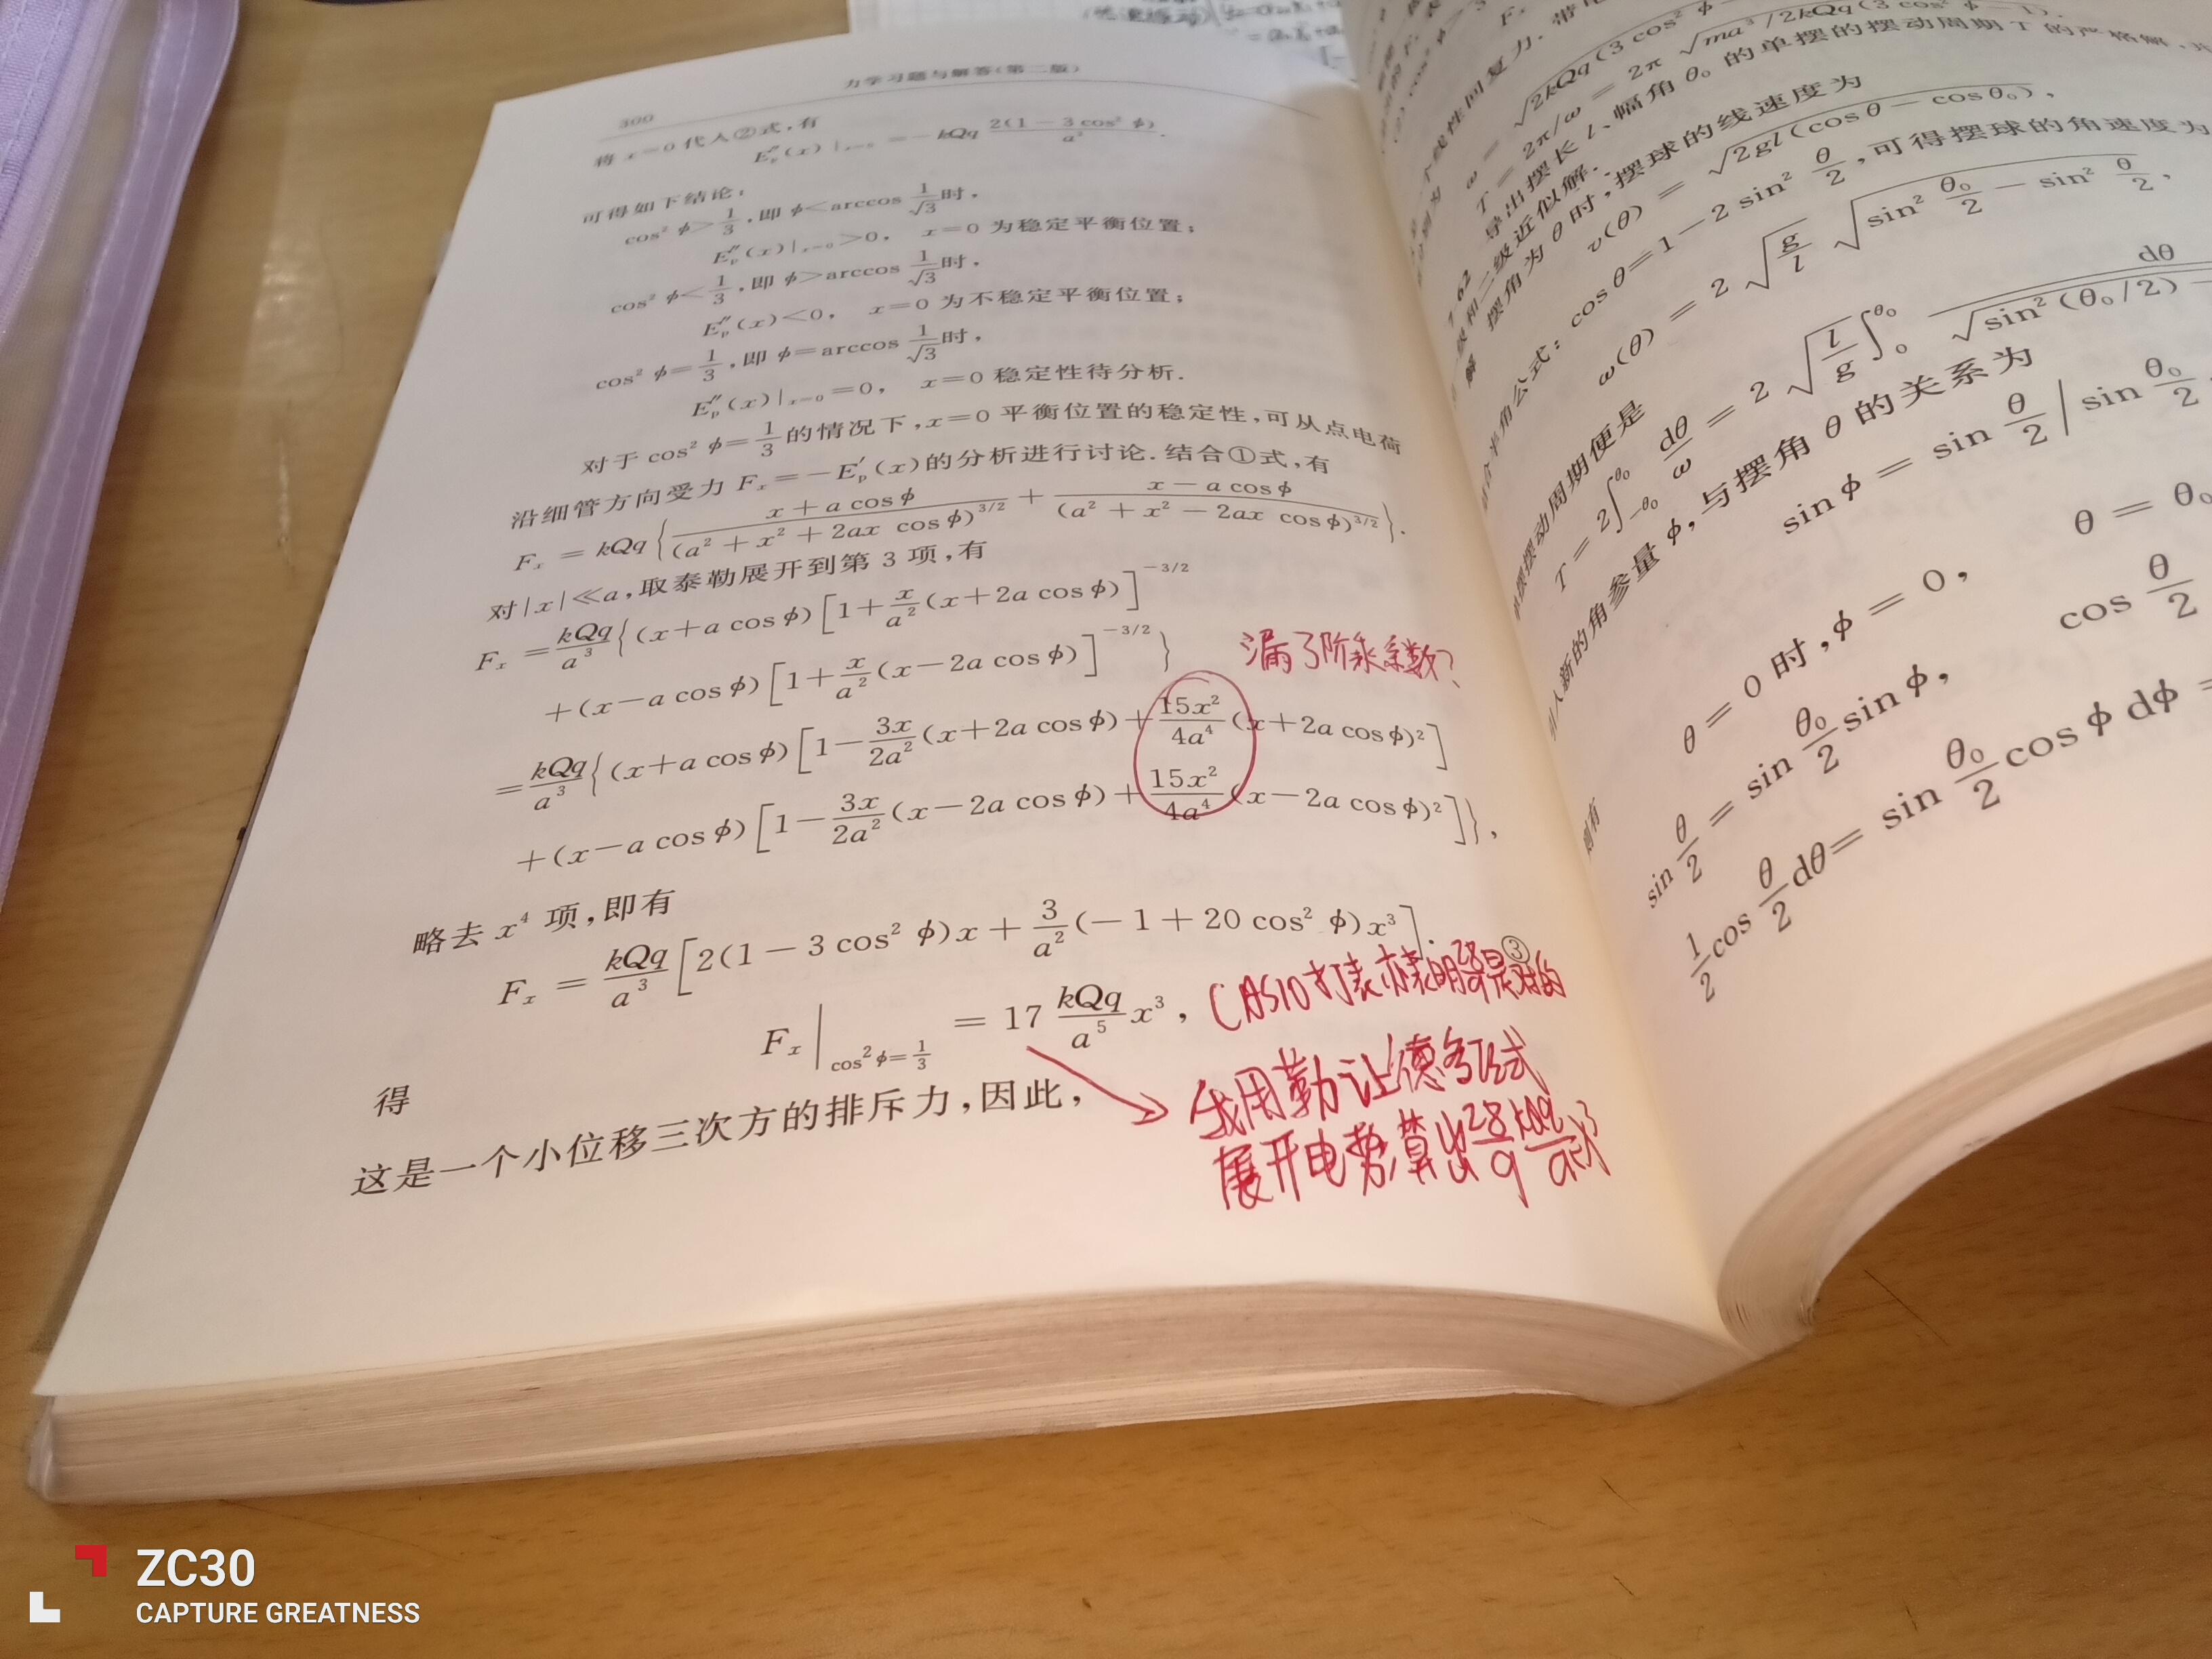 力学习题与解答(第二版)
300
将 x=0 代入②式,有
E″ₚ(x)|ₓ₌₀ = −kQq 2(1−3cos² φ)/a³.
可得如下结论:
cos² φ>1/3,即 φ<arccos 1/√3 时,
E″ₚ(x)|ₓ₌₀>0, x=0 为稳定平衡位置;
cos² φ<1/3,即 φ>arccos 1/√3 时,
E″ₚ(x)<0, x=0 为不稳定平衡位置;
cos² φ=1/3,即 φ=arccos 1/√3 时,
E″ₚ(x)|ₓ₌₀=0, x=0 稳定性待分析.
对于 cos² φ=1/3 的情况下,x=0 平衡位置的稳定性,可从点电荷
沿细管方向受力 Fₓ=−E′ₚ(x)的分析进行讨论.结合①式,有
Fₓ = kQq{(x+a cosφ)/(a²+x²+2ax cosφ)^(3/2) + (x−a cosφ)/(a²+x²−2ax cosφ)^(3/2)}.
对|x|≪a,取泰勒展开到第 3 项,有
Fₓ = kQq/a³{(x+a cosφ)[1+x/a²(x+2a cosφ)]^(−3/2)
+(x−a cosφ)[1+x/a²(x−2a cosφ)]^(−3/2)}
漏了阶乘系数?
=kQq/a³{(x+a cosφ)[1−3x/2a²(x+2a cosφ)+15x²/4a⁴(x+2a cosφ)²]
+(x−a cosφ)[1−3x/2a²(x−2a cosφ)+15x²/4a⁴(x−2a cosφ)²]},
略去 x⁴ 项,即有
Fₓ = kQq/a³[2(1−3cos² φ)x+3/a²(−1+20cos² φ)x³]. ③
得
Fₓ|cos²φ=1/3 = 17 kQq/a⁵ x³,
CASIO打表亦表明28/9是对的
我用勒让德多项式
展开电势算出28/9 kQq/a⁵ x³
这是一个小位移三次方的排斥力,因此,
ω = √2kQq(3cos² φ−
T = 2π/ω = 2π √ma³/2kQq(3cos² φ−1).
导出摆长 l、幅角 θ₀ 的单摆的摆动周期 T 的严格解,
级和二级近似解.
解 摆角为 θ 时,摆球的线速度为
v(θ) = √2gl(cosθ−cosθ₀),
半角公式:cosθ=1−2 sin² θ/2,可得摆球的角速度为
ω(θ) = 2 √g/l √sin² θ₀/2 − sin² θ/2,
摆动周期便是
T = 2∫₋θ₀^θ₀ dθ/ω = 2 √l/g ∫₀^θ₀ dθ/√sin²(θ₀/2)−
入新的角参量 φ,与摆角 θ 的关系为
sinφ = sin θ/2 | sin θ₀/2
θ=0 时,φ=0, θ=θ₀
则有
sin θ/2 = sin θ₀/2 sinφ, cos θ/2
1/2 cos θ/2 dθ = sin θ₀/2 cosφ dφ =
ZC30
CAPTURE GREATNESS